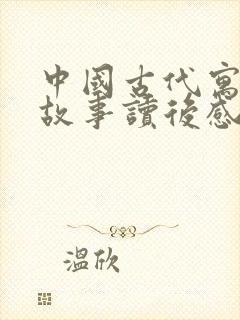 中國古代寓
故事讀後感
溫欣